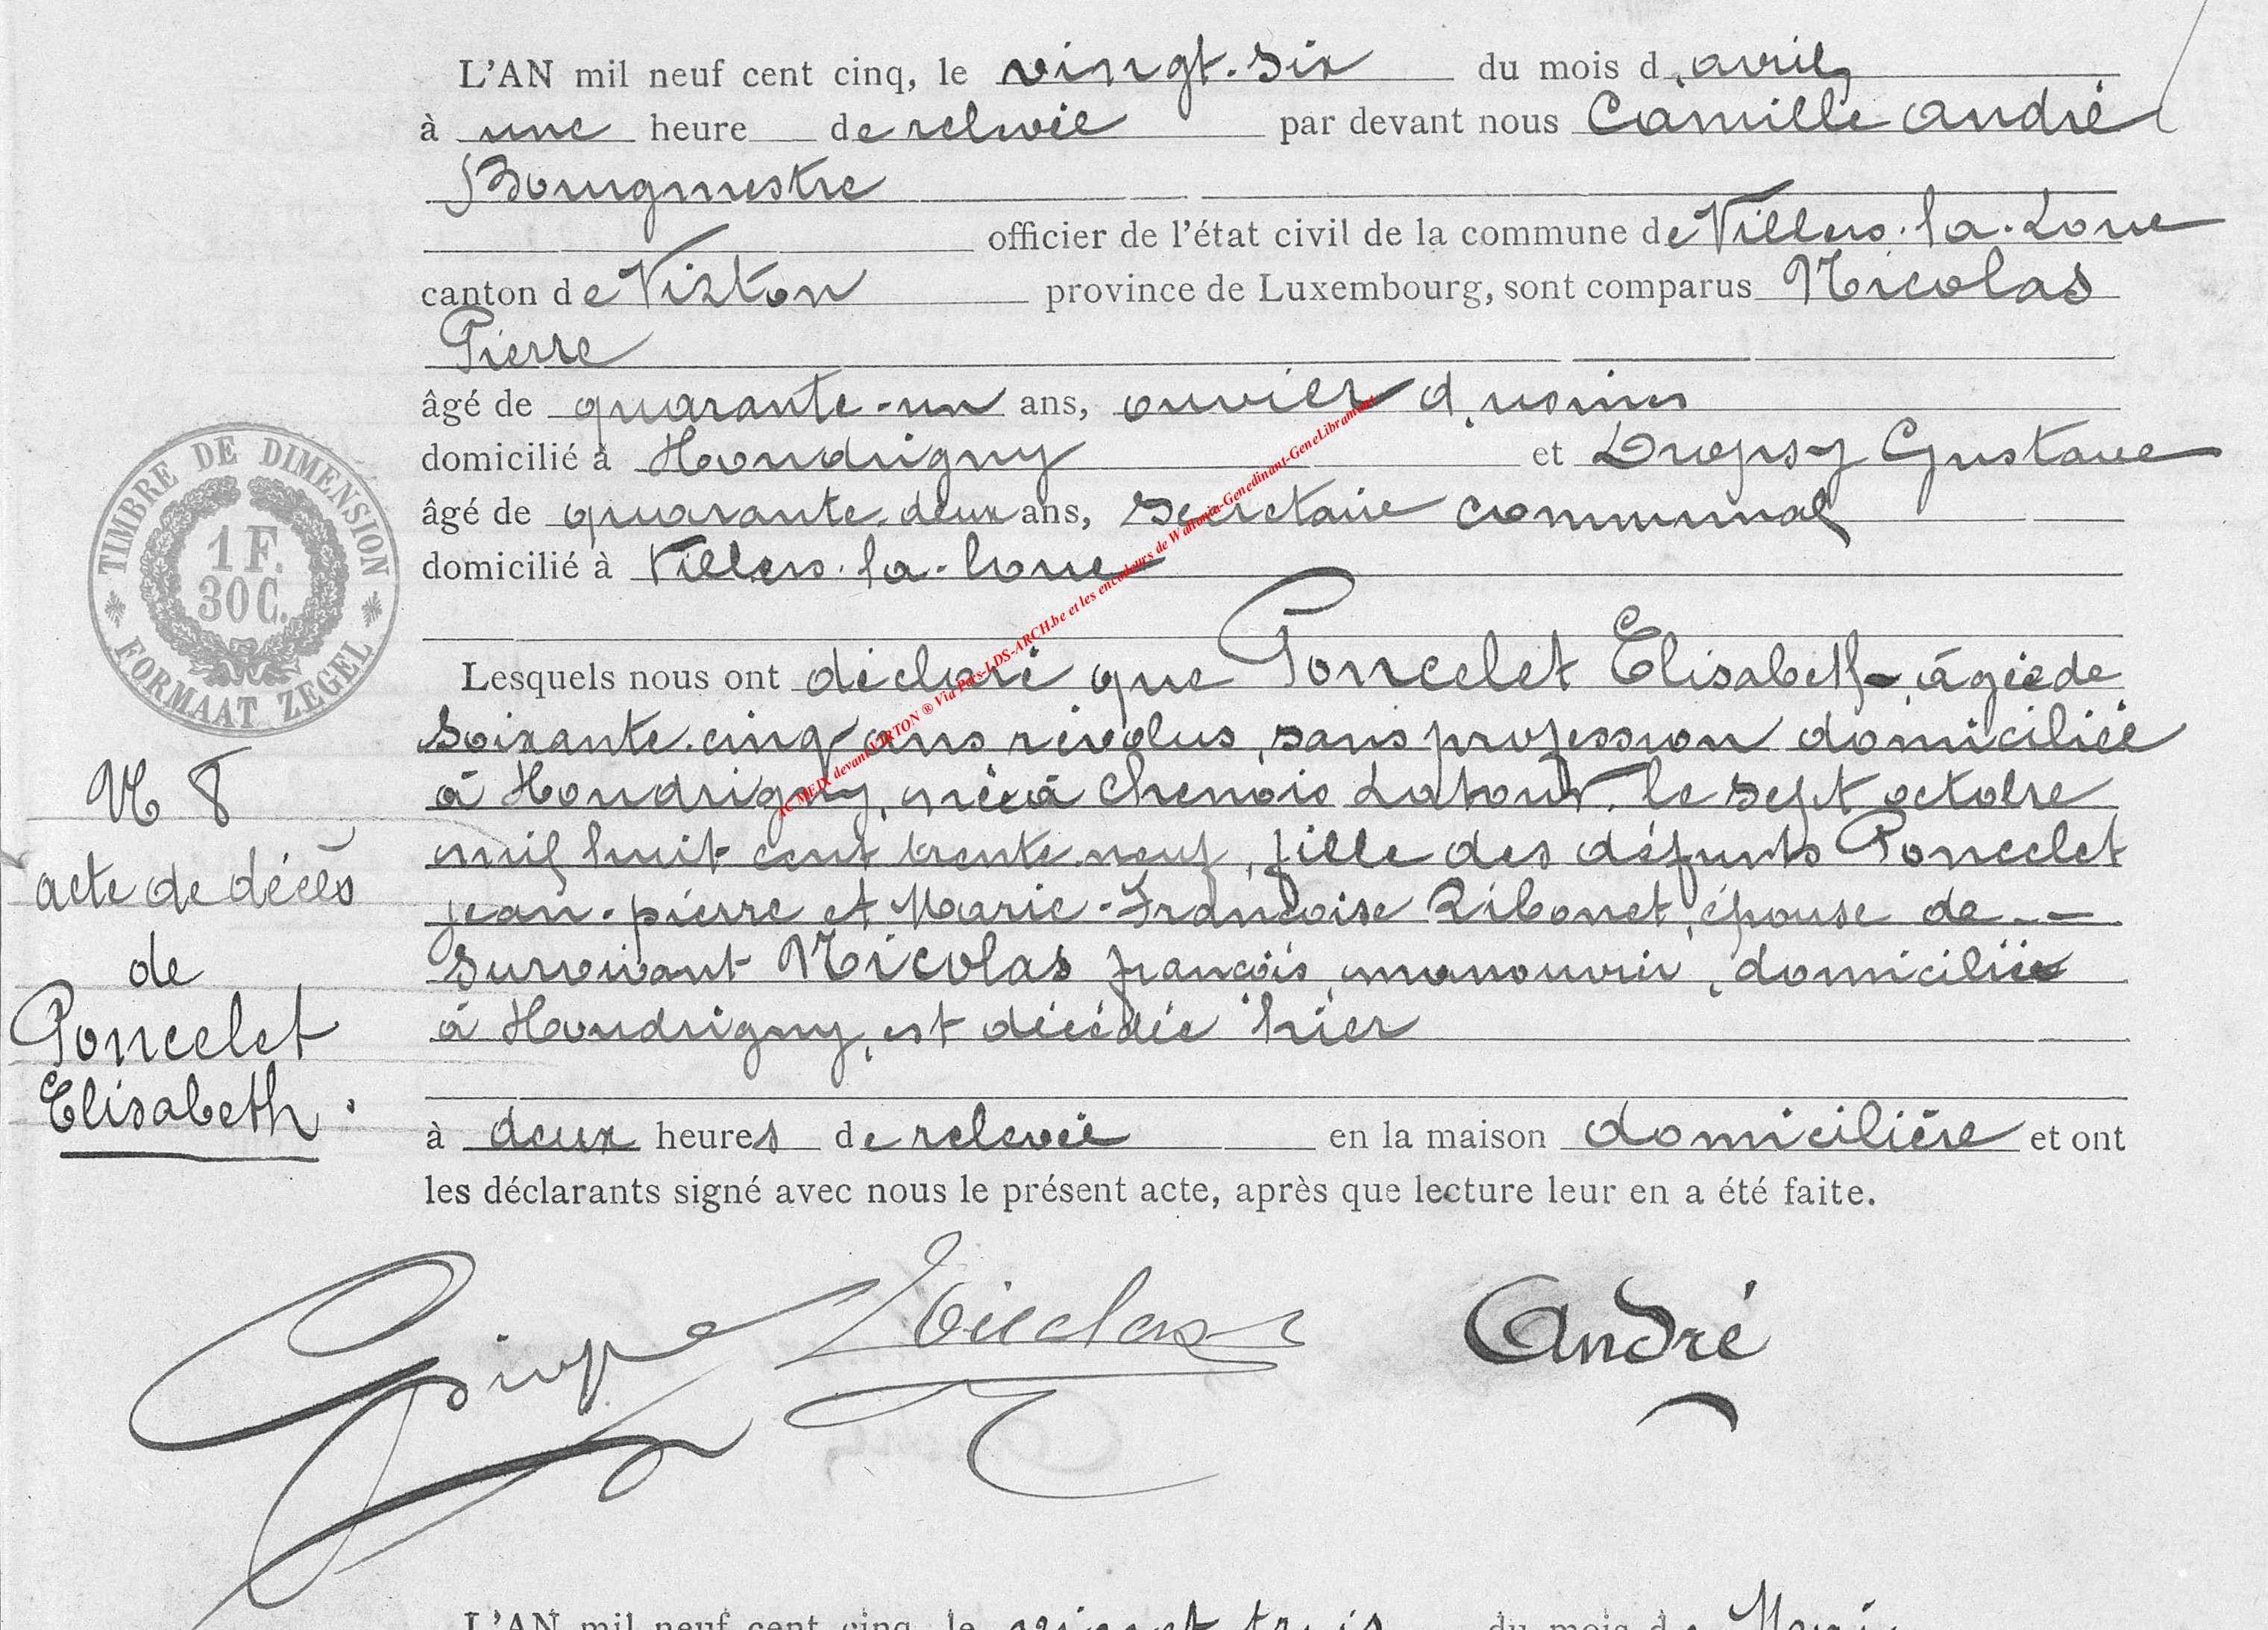 L'AN mil neuf cent cinq, le vingt-six du mois d'avril
à une heure de relevée par devant nous Camille André
Bourgmestre
officier de l'état civil de la commune de Villers-la-Loue
canton de Virton province de Luxembourg, sont comparus Nicolas
Pierre
âgé de quarante-un ans, ouvrier d'usines
domicilié à Houdrigny et Dropsy Gustave
âgé de quarante-deux ans, secrétaire communal
domicilié à Villers-la-Loue
Lesquels nous ont déclaré que Poncelet Elisabeth âgée de
soixante-cinq ans révolus, sans profession domiciliée
à Houdrigny, née à Chenois Latour, le sept octobre
mil huit cent trente-neuf, fille des défunts Poncelet
jean-pierre et Marie-Françoise Ribonet, épouse de
survivant Nicolas françois, manouvrier, domicilié
à Houdrigny, est décédée hier
à deux heures de relevée en la maison domicilière et ont
les déclarants signé avec nous le présent acte, après que lecture leur en a été faite.
Nicolas André
TIMBRE DE DIMENSION
1 F.
30 C.
FORMAAT ZEGEL
N 8
acte de décès
de
Poncelet
Elisabeth.
AC MEIX devant VIRTON ® Via Pers-LDS-ARCH.be et les encodeurs de Wallonia-Genedinant-GeneLibramont
L'AN mil neuf cent cinq, le vingt trois du mois de Mai